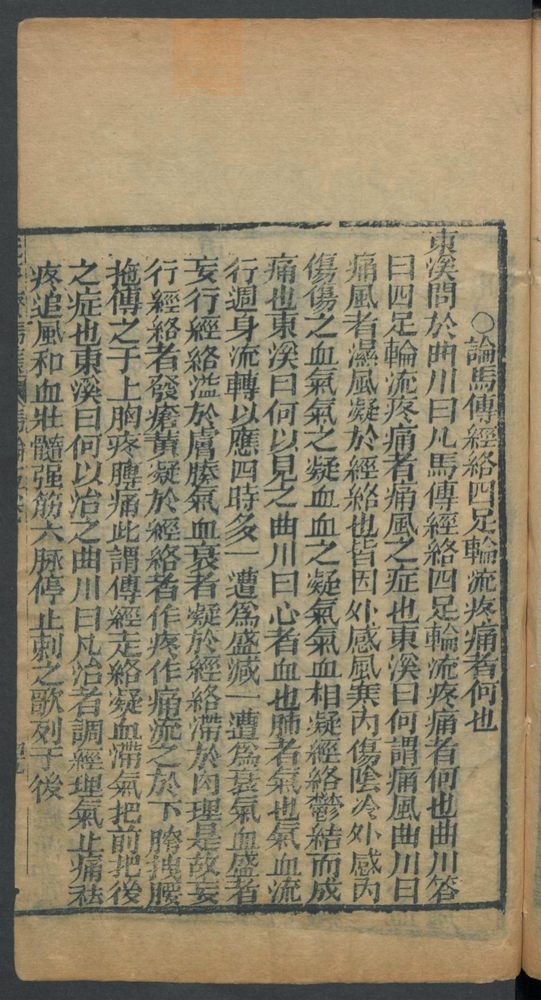 ○論馬傳經絡四足輪流疼痛者何也
東溪問於曲川曰凡馬傳經絡四足輪流疼痛者何也曲川答
曰四足輪流疼痛者痛風之症也東溪曰何謂痛風曲川曰
痛風者濕風凝於經絡也皆因外感風寒內傷陰冷外感內
傷傷之血氣氣之凝血血之凝氣氣血相凝經絡鬱結而成
痛也東溪曰何以見之曲川曰心者血也肺者氣也氣血流
行週身流轉以應四時多一遭爲盛減一遭爲衰氣血盛者
妄行經絡溢於膚腠氣血衰者凝於經絡滯於肉理是故妄
行經絡者發瘡黃凝於經絡者作疼作痛流之於下胯拽腰
拖傳之于上胸疼膊痛此謂傳經走絡凝血滯氣把前把後
之症也東溪曰何以治之曲川曰凡治者調經理氣止痛祛
疼追風和血壯髓强筋六脉停止刺之歌列于後